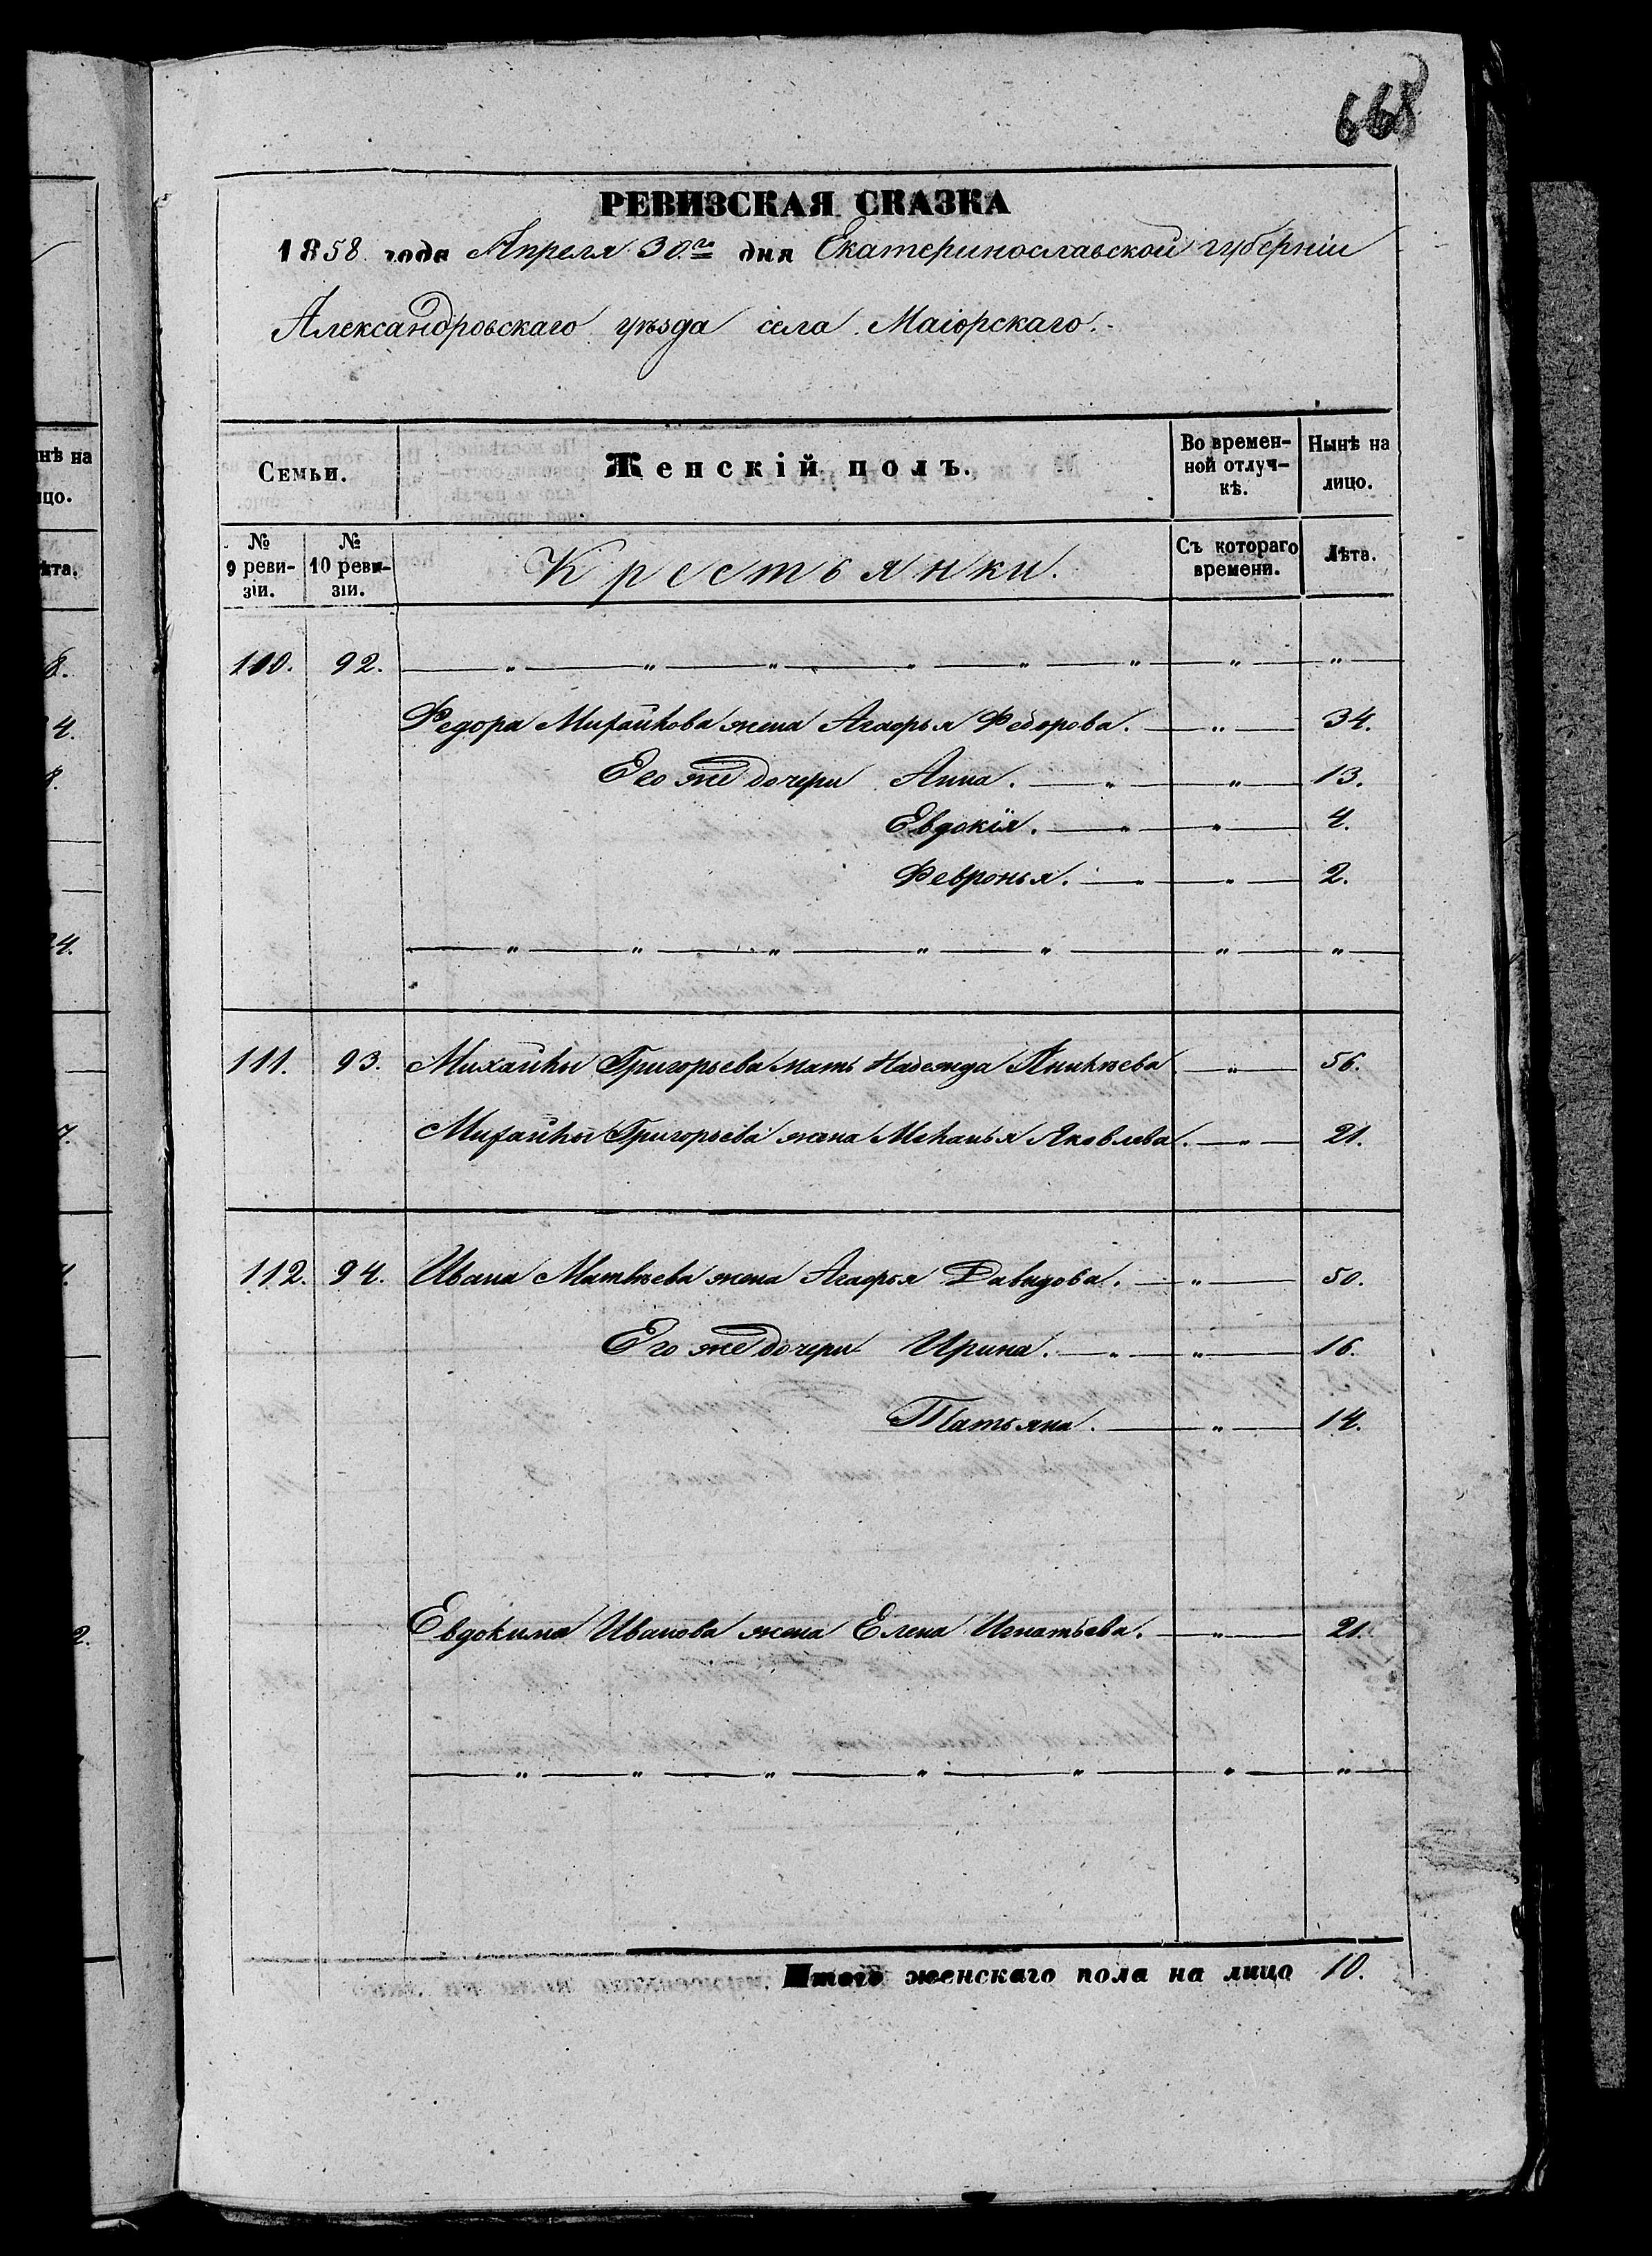 668
РЕВИЗСКАЯ СКАЗКА
1858 года Апреля 30го дня Екатеринославской губерніи
Александровскаго уѣзда села Маіорскаго.
Семьи. Женскій полъ. Во времен-ной отлуч-кѣ. Нынѣ на лицо.
№ 9 реви-зіи. № 10 реви-зіи. Крестьянки. Съ котораго времени. Лѣта.
110. 92. — „ — „ — „ — „ — „ — „ — „ — „ —
Федора Михайлова жена Агафья Федорова. — „ — 34.
Его же дочери Анна. — „ — „ — 13.
Евдокія. — „ — „ — 4.
Февронья. — „ — „ — 2.
— „ — „ — „ — „ — „ — „ — „ —
111. 93. Михайлы Григорьева мать Надежда Аникѣева — „ — 56.
Михайлы Григорьева жена Меланья Яковлева. — „ — 21.
112. 94. Ивана Матвѣева жена Агафья Давыдова. — „ — 50.
Его же дочери Ирина. — „ — „ — 16.
Татьяна. — „ — 14.
Евдокима Иванова жена Елена Игнатьева. — „ — 21.
— „ — „ — „ — „ — „ — „ — „ —
Итого женскаго пола на лицо 10.